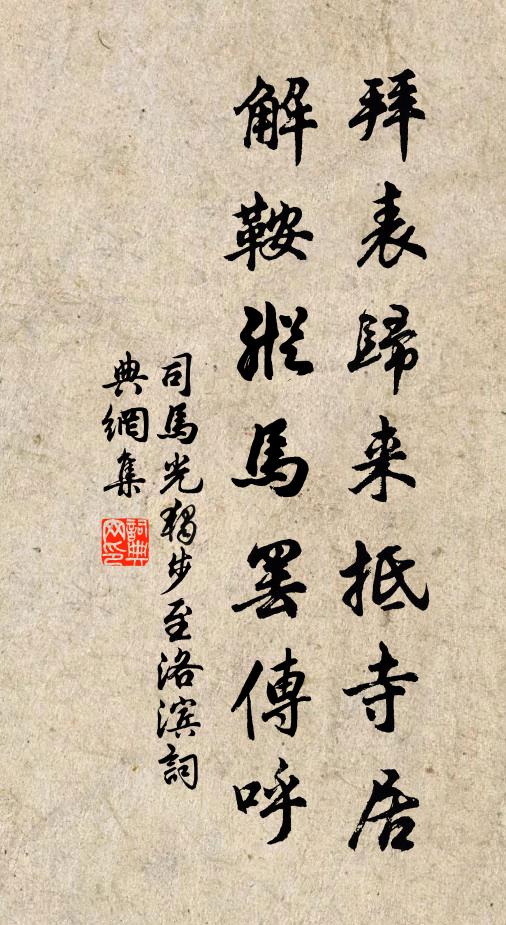 拜表歸来抵寺居
解鞍縱馬罢傳呼
司馬光獨步至洛滨詞
典網集
詞典网印